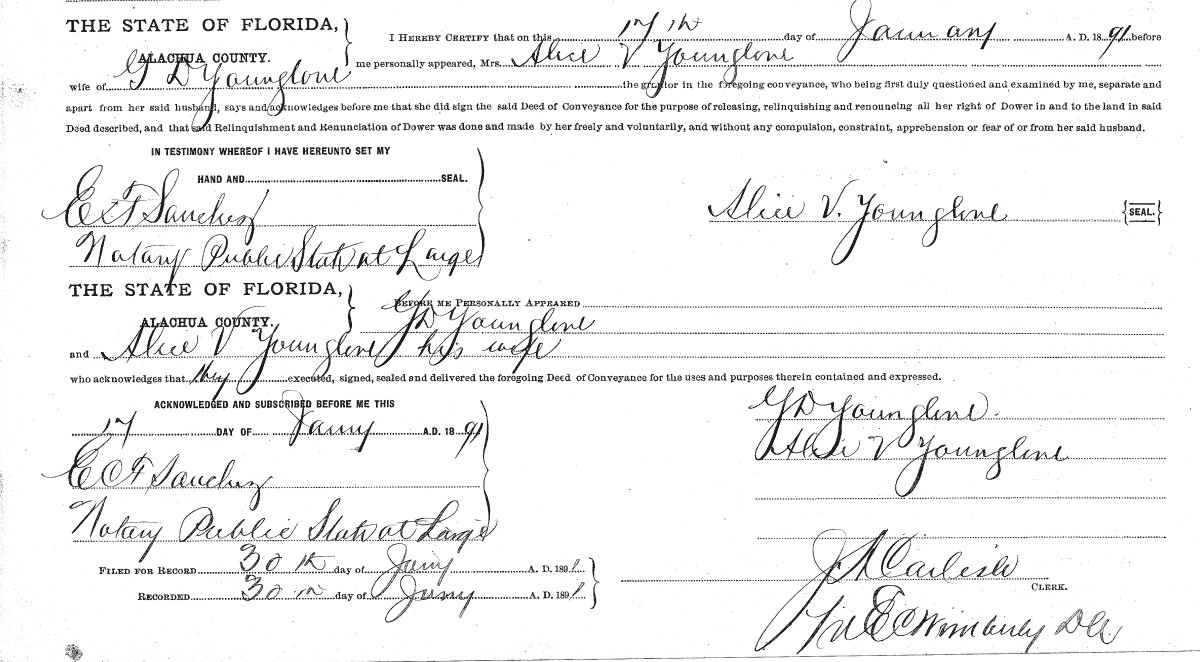 THE STATE OF FLORIDA,
ALACHUA COUNTY.
I HEREBY CERTIFY that on this 17th day of January A. D. 1891 before
me personally appeared, Mrs. Alice V Younglove
wife of G D Younglove the grantor in the foregoing conveyance, who being first duly questioned and examined by me, separate and
apart from her said husband, says and acknowledges before me that she did sign the said Deed of Conveyance for the purpose of releasing, relinquishing and renouncing all her right of Dower in and to the land in said
Deed described, and that said Relinquishment and Renunciation of Dower was done and made by her freely and voluntarily, and without any compulsion, constraint, apprehension or fear of or from her said husband.
IN TESTIMONY WHEREOF I HAVE HEREUNTO SET MY
HAND AND SEAL.
E C F Sanchez
Alice V. Younglove {SEAL.}
Notary Public State at Large
THE STATE OF FLORIDA,
ALACHUA COUNTY.
BEFORE ME PERSONALLY APPEARED
G D Younglove
and Alice V Younglove his wife
who acknowledges that they executed, signed, sealed and delivered the foregoing Deed of Conveyance for the uses and purposes therein contained and expressed.
ACKNOWLEDGED AND SUBSCRIBED BEFORE ME THIS
17 DAY OF Jany A.D. 1891
G D Younglove.
Alice V Younglove
E C F Sanchez
Notary Public State at Large
FILED FOR RECORD 30th day of Jany A. D. 1891
RECORDED 30th day of Jany A. D. 1891
J A Carlisle
CLERK.
Wimberly DC